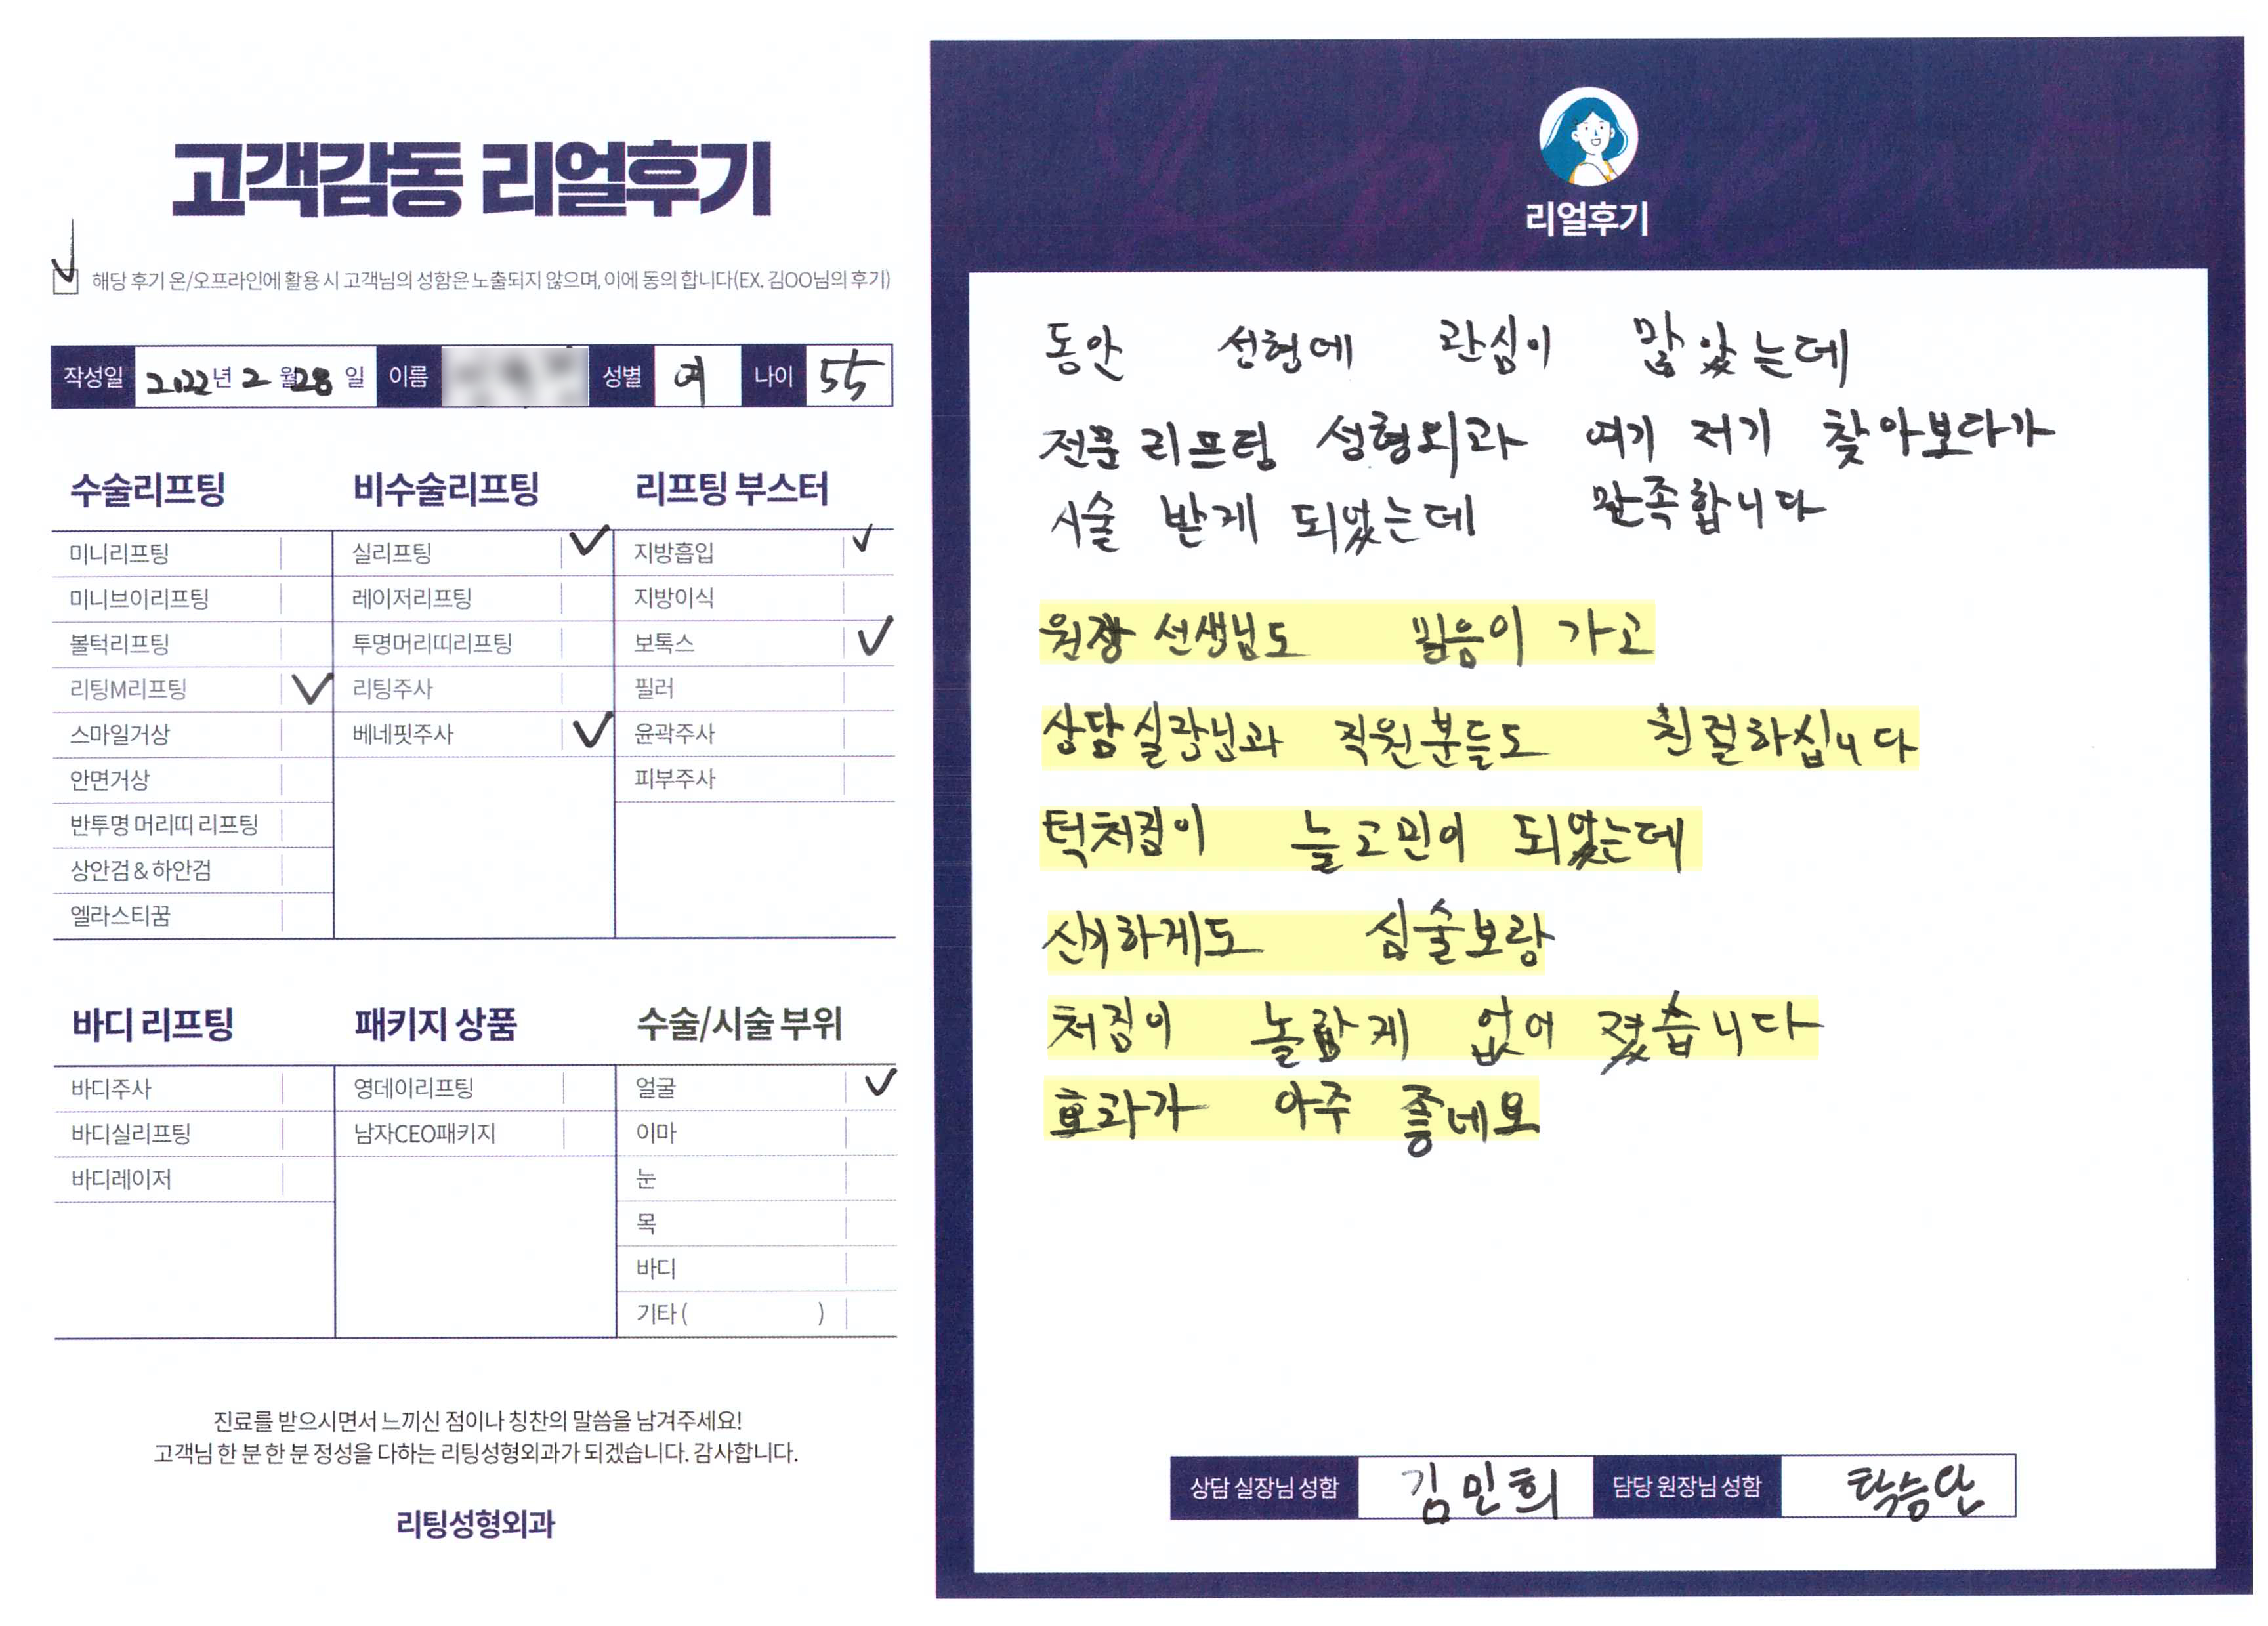 고객감동 리얼후기
해당 후기 온/오프라인에 활용 시 고객님의 성함은 노출되지 않으며, 이에 동의 합니다(EX. 김OO님의 후기)
작성일 2022년 2월 28일 이름 성별 여 나이 55
수술리프팅 비수술리프팅 리프팅 부스터
미니리프팅 실리프팅 지방흡입
미니브이리프팅 레이저리프팅 지방이식
볼턱리프팅 투명머리띠리프팅 보톡스
리팅M리프팅 리팅주사 필러
스마일거상 베네핏주사 윤곽주사
안면거상 피부주사
반투명 머리띠 리프팅
상안검&하안검
엘라스티꿈
바디 리프팅 패키지 상품 수술/시술 부위
바디주사 영데이리프팅 얼굴
바디실리프팅 남자CEO패키지 이마
바디레이저 눈
목
바디
기타 ( )
진료를 받으시면서 느끼신 점이나 칭찬의 말씀을 남겨주세요!
고객님 한 분 한 분 정성을 다하는 리팅성형외과가 되겠습니다. 감사합니다.
리팅성형외과
리얼후기
동안 성형에 관심이 많았는데
전문 리프팅 성형외과 여기 저기 찾아보다가
시술 받게 되었는데 만족합니다
원장 선생님도 믿음이 가고
상담실장님과 직원분들도 친절하십니다
턱처짐이 늘고민이 되었는데
신기하게도 심술보랑
처짐이 놀랍게 없어 졌습니다
효과가 아주 좋네요
상담 실장님 성함 김민희 담당 원장님 성함